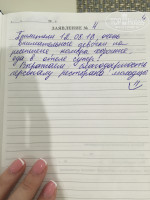 ЗАЯВЛЕНИЕ № 4
Приехали 18.08.18, очень
внимательные девочки на
ресепшене, номера хорошие,
еда в отеле супер!
Выражаем благодарность
персоналу ресторана молодцы